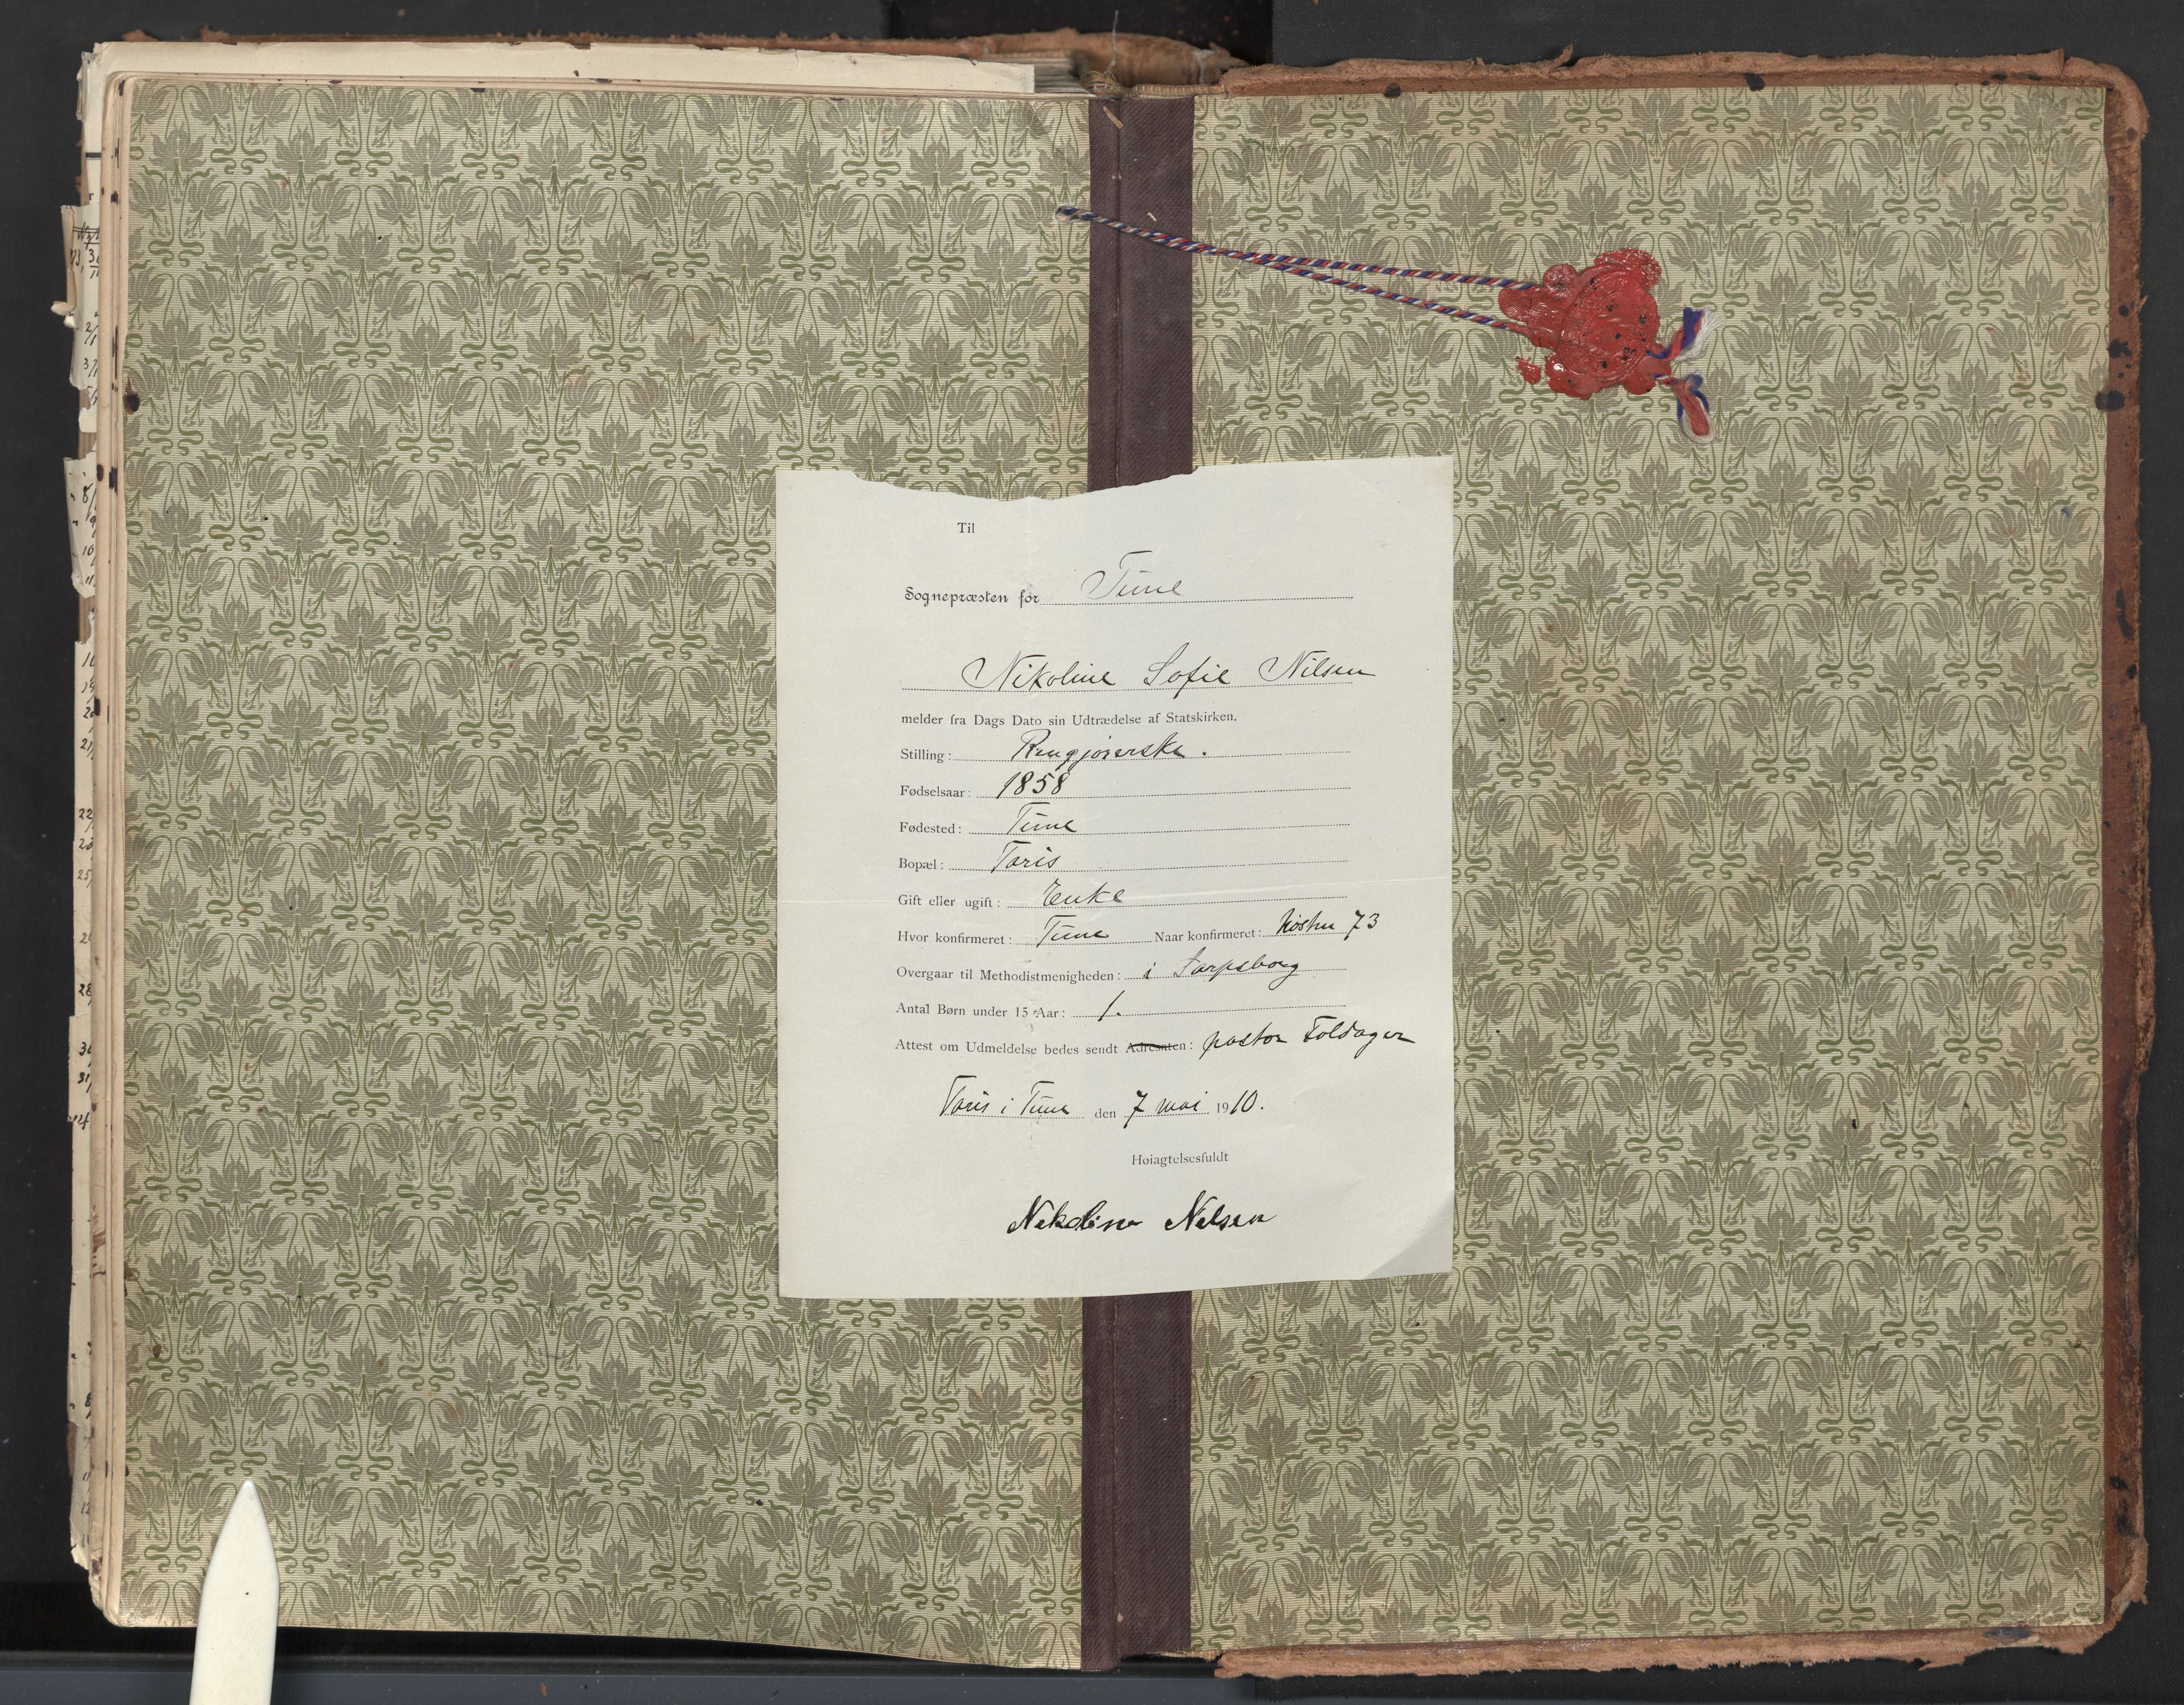 Til
Sognepræsten for Tune
Nikoline Sofie Nilsen
melder fra Dags Dato sin Udtrædelse af Statskirken.
Stilling: Rengjørerske.
Fødselsaar: 1858
Fødested: Tune
Bopæl: Taris
Gift eller ugift: Enke
Hvor konfirmeret: Tune Naar konfirmeret: høsten 73
Overgaar til Methodistmenigheden: i Sarpsborg
Antal Børn under 15 Aar: 1.
Attest om Udmeldelse bedes sendt Adresaten: pastor Foldager
Taris i Tune den 7 mai 1910.
Høiagtelsesfuldt
Nikoline Nelsen